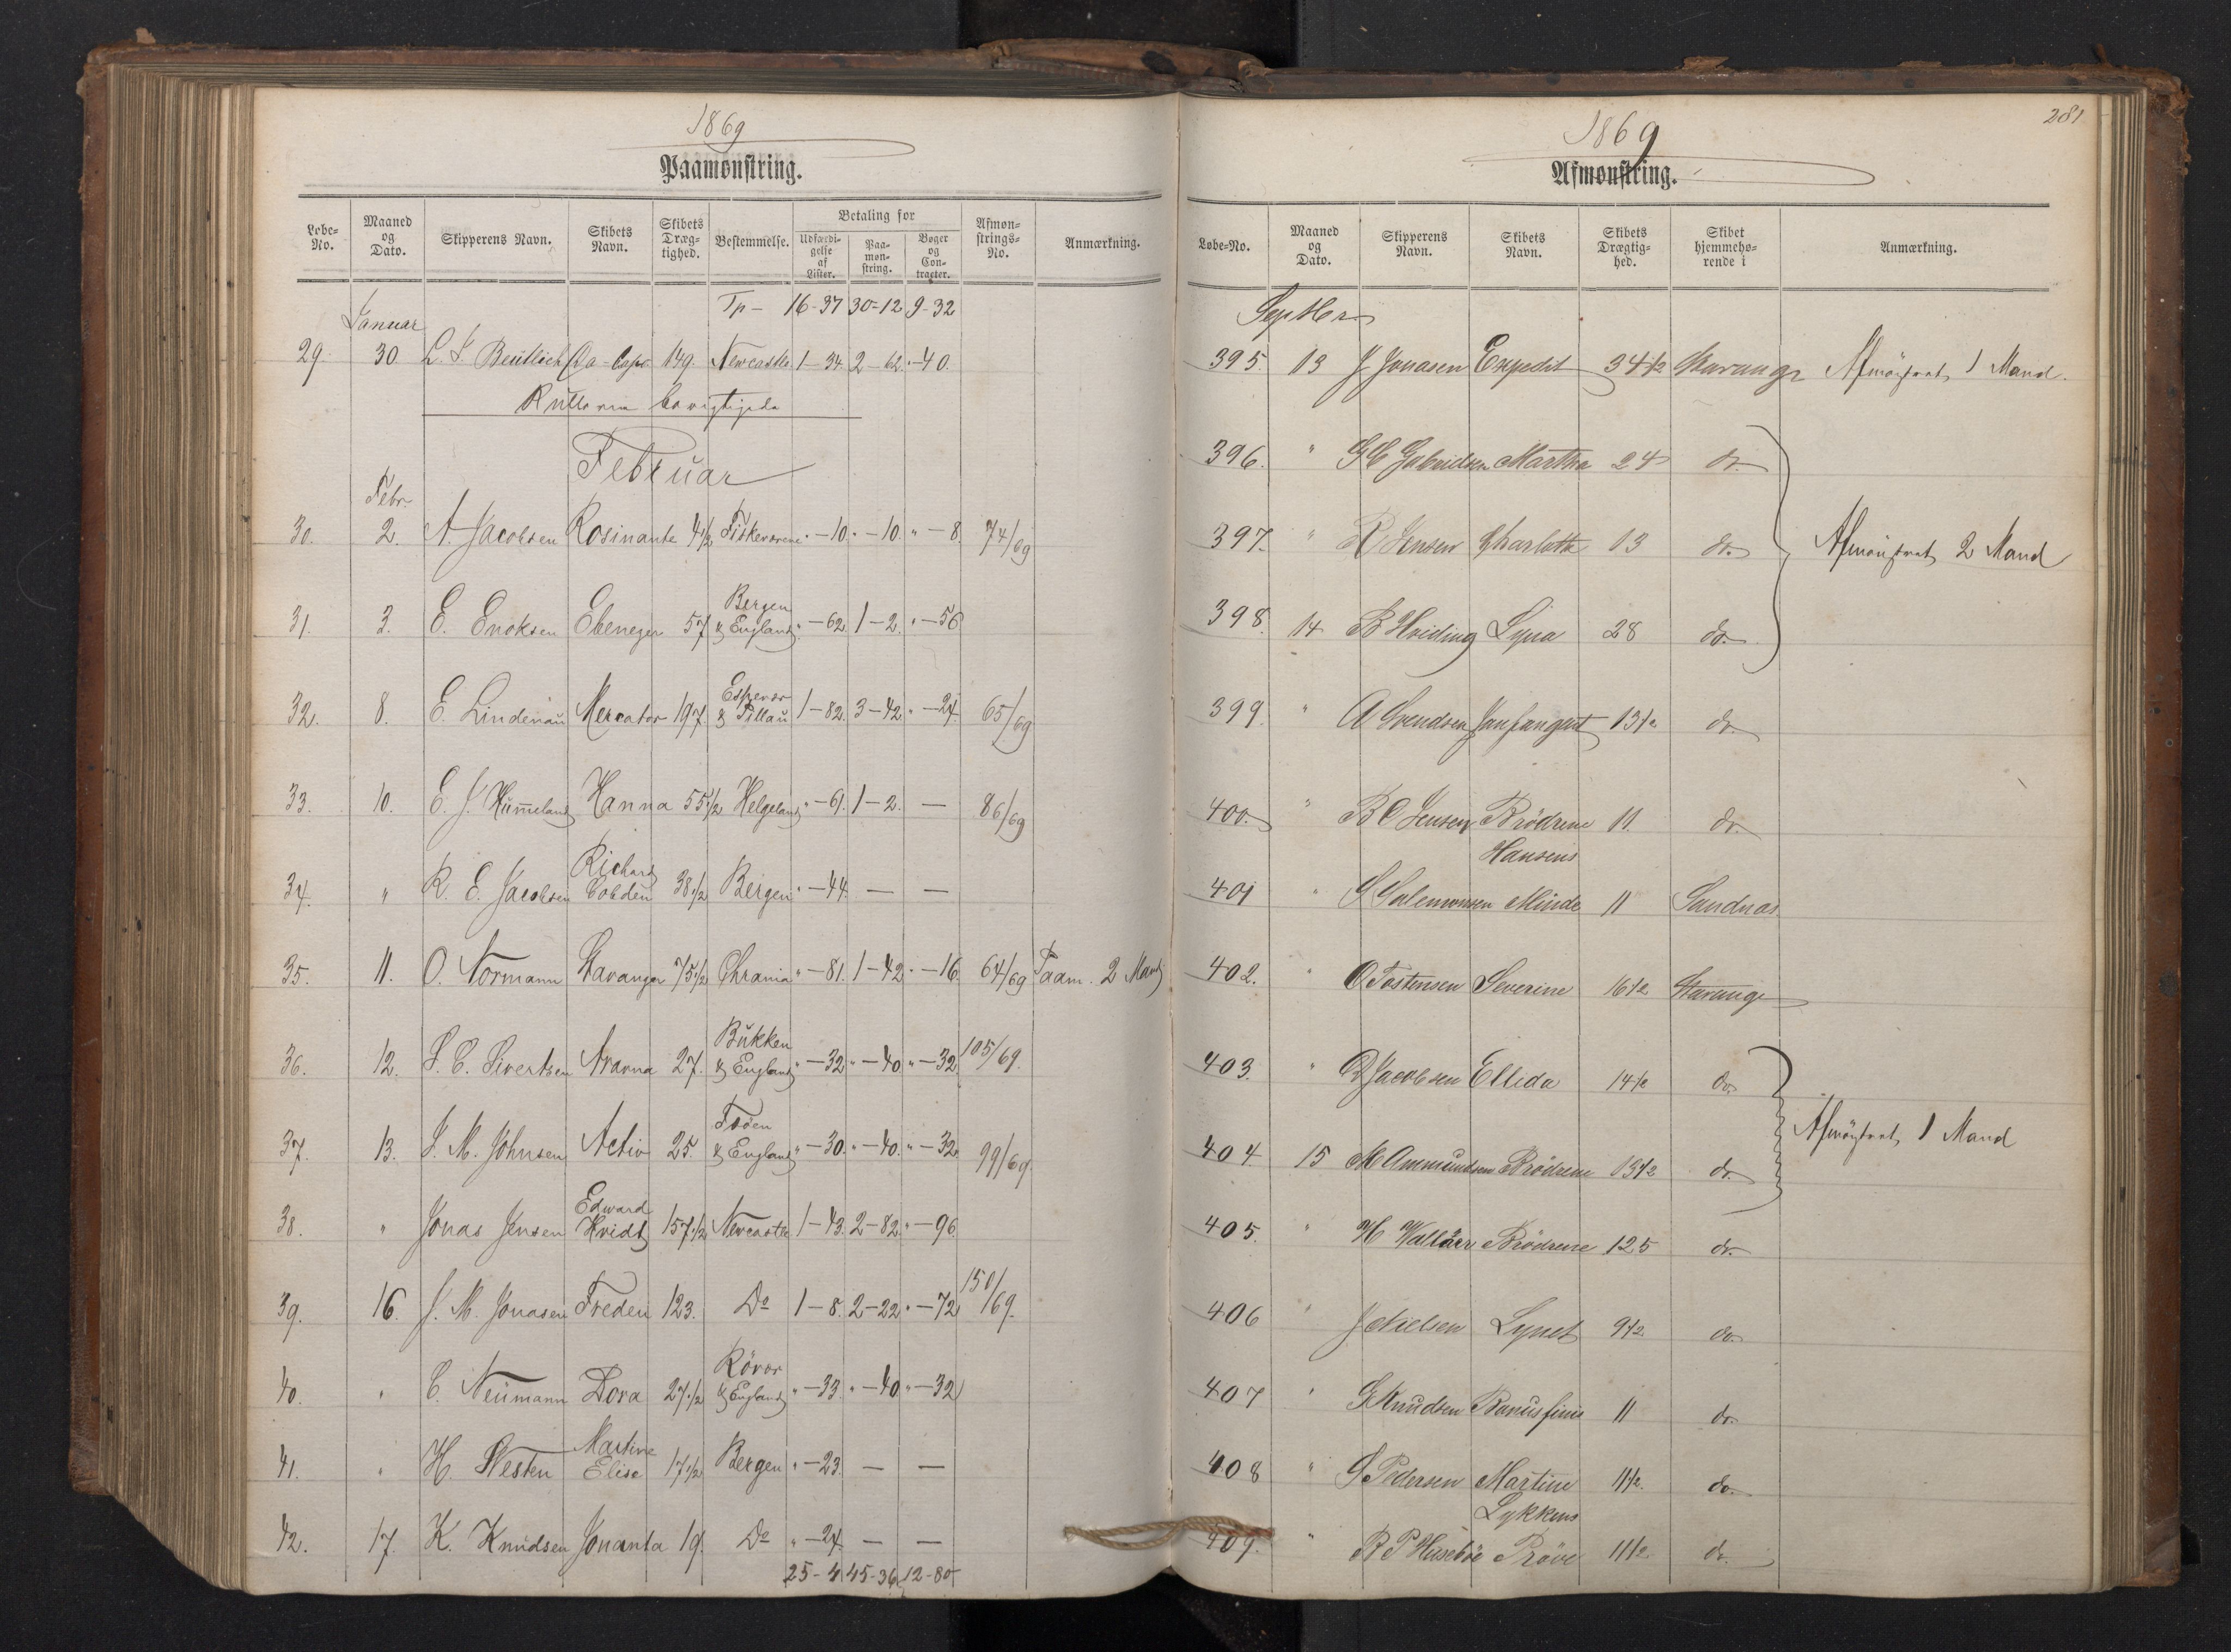 1869
Paamønstring.
Løbe-No. Maaned og Dato. Skipperens Navn. Skibets Navn. Skibets Dræg-tighed. Bestemmelse. Betaling for Udfærdi-gelse af Lister. Paa-møn-string. Bøger og Con-tracter. Afmøn-strings-No. Anmærkning.
Tp - 16-37 30-12 9-32
Januar
29. 30. L. S. Beutlich Da Capo 149. Newcastle. 1-34. 2-62. "-40.
Februar
Febr.
30. 2. A. Jacobsen Rosinante 4 1/2 Fiskeværene. "-10. "-10. "-8. 74/69
31. 3. E. Enoksen Ebenezer 57 Bergen & England "-62. 1-2. "-56
32. 8. E. Lindenau Mercator 197. Espevær & Pillau 1-82. 3-42. "-24. 65/69
33. 10. E. J. Hummeland Hanna 55 1/2 Helgeland "-61. 1-2. - 86/69
34. " R. E. Jacobsen Richard Cobden 38 1/2 Bergen "-44. - -
35. 11. O. Normann Stavanger 75 1/2 Chrania "-81. 1-42. "-16. 64/69 Paam. 2 Mand
36. 12. S. C. Sivertsen Avarna 27. Bukken & England "-32 "-40. "-32 105/69.
37. 13. S. M. Johnsen Activ 25. Fæøen & England "-30. "-40. "-32 99/69
38. " Jonas Jensen Edward Hvidt 157 1/2 Newcastle 1-43. 2-82. "-96.
39. 16. J. M. Jonasen Freden 123. Do 1-8. 2-22. "-72 150/69.
40. " C. Neumann Dora 27 1/2 Rövær & England "-33. "-40. "-32
41. " H. Westen Martine Elise 17 1/2 Bergen "-23. - -
42. 17. K. Knudsen Jonanta 19. Do "-24. - -
25-4 45-36 12-80
281
1869
Afmønstring.
Løbe-No. Maaned og Dato. Skipperens Navn. Skibets Navn. Skibets Drægtig-hed. Skibet hjemmehø-rende i Anmærkning.
Septbr
395. 13 J Jonasen Expedit 34 1/2 Stavanger Afmönstret 1 Mand.
396. " G C Gabrielsen Martha 24 do
397. " R Jensen Charlotte 13 do. Afmönstret 2 Mand
398. 14 B Hviding Lyra 28 do.
399. " A Svendsen Janfangent 13 1/2 do
400. " B O Jensen Brödrene 11. do.
401 " S Salemonsen Hansens Minde 11 Sandnæs
402. " O Tostensen Severine 16 1/2 Stavanger
403. " D Jacobsen Ellida 14 1/2 do
Afmönstret 1 Mand
404 15 M Ammundsen Brödrene 13 1/2 do.
405. " H Wallær Brödrene 125 do.
406 " J Nielsen Lynet 9 1/2 do.
407 " G Knudsen Bonusfinis 11 do.
408 " S Pedersen Martine 11 1/2. do.
409. " B P Husebøe Lykkens Pröve 11 1/2 do.